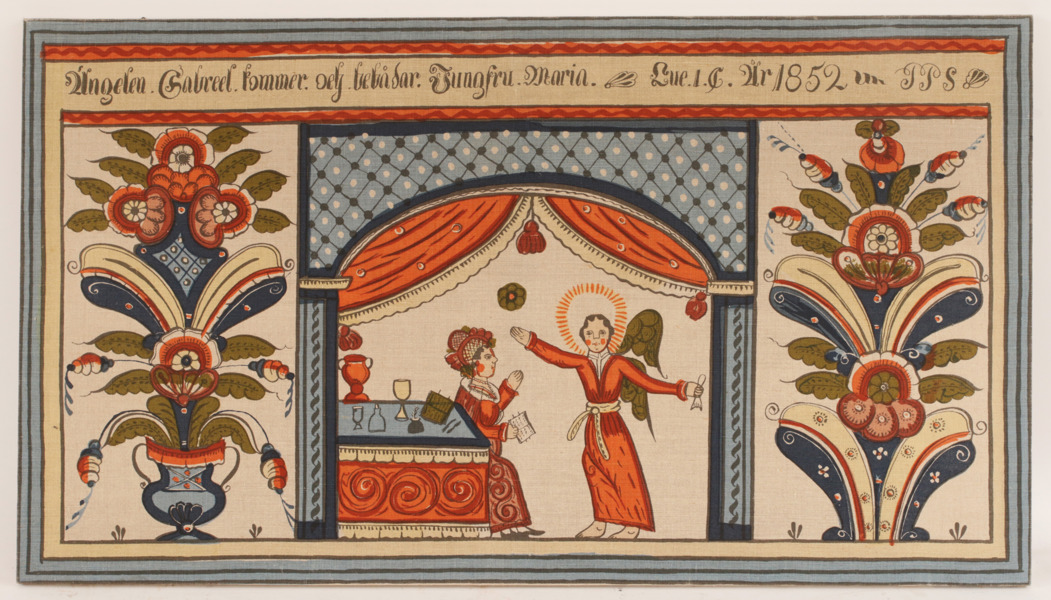 Ängelen. Gabreel. kommer. och. bebådar. Jungfru. Maria. Luc. 1. C. År 1852 IPS